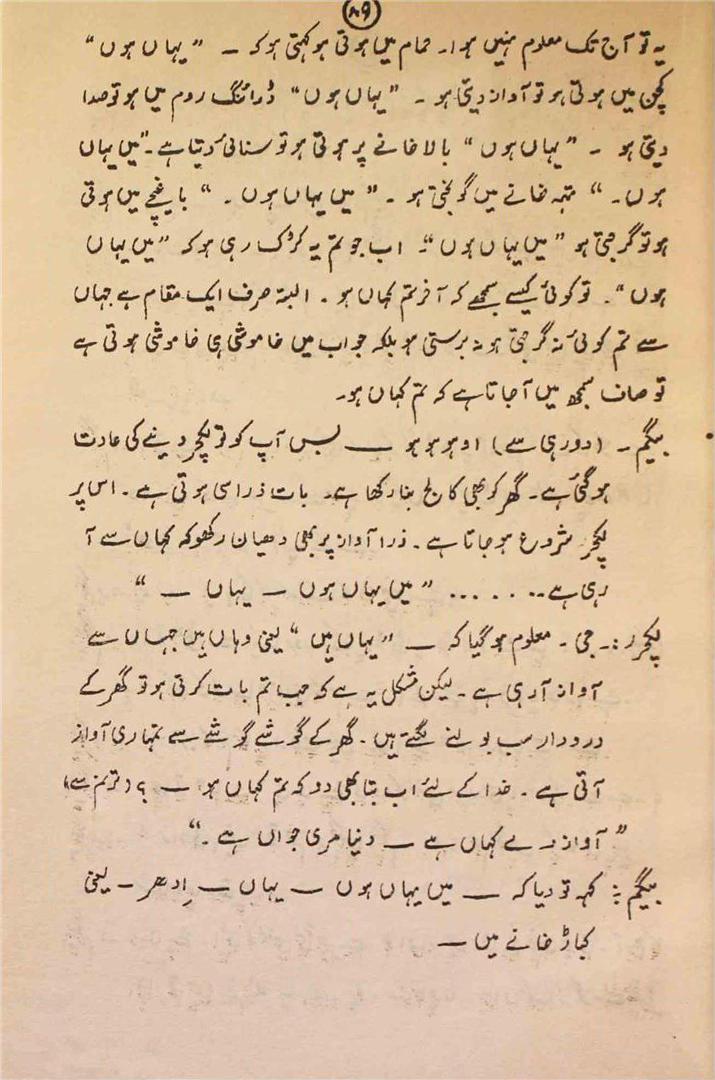 ۸۹
یہ تو آج تک معلوم نہیں ہوا۔ حمام میں ہوتی ہو کہتی ہو کہ — "یہاں ہوں"
کچن میں ہوتی ہو تو آواز دیتی ہو ۔ "یہاں ہوں" ڈرائنگ روم میں ہو تو صدا
دیتی ہو ۔ "یہاں ہوں" بالا خانے پر ہوتی ہو تو سنائی دیتا ہے ۔ "میں یہاں
ہوں۔" تہہ خانے میں گونجتی ہو ۔ "میں یہاں ہوں ۔" باغیچے میں ہوتی
ہو تو گرجتی ہو "میں یہاں ہوں"۔ اب جو تم یہ کڑک رہی ہو کہ "میں یہاں
ہوں"۔ تو کوئی کیسے سمجھے کہ آخر تم کہاں ہو ۔ البتہ صرف ایک مقام ہے جہاں
سے تم کوئی نہ گرجتی ہو نہ برستی ہو بلکہ جواب میں خاموشی ہی خاموشی ہوتی ہے
تو صاف سمجھ میں آ جاتا ہے کہ تم کہاں ہو۔
بیگم ۔ (دور ہی سے) اوہو ہو ہو — بس آپ کو تو لیکچر دینے کی عادت
ہو گئی ہے ۔ گھر کو بھی کالج بنا رکھا ہے ۔ بات ذرا سی ہوتی ہے ۔ اس پر
لیکچر شروع ہو جاتا ہے ۔ ذرا آواز پر بھی دھیان رکھو کہ کہاں سے آ
رہی ہے ۔ ۔ ۔ ۔ ۔ ۔ ۔ "میں یہاں ہوں — یہاں —"
لیکچرر :۔ جی ۔ معلوم ہو گیا کہ — "یہاں ہیں" یعنی وہاں ہیں جہاں سے
آواز آ رہی ہے ۔ لیکن مشکل یہ ہے کہ جب تم بات کرتی ہو تو گھر کے
در و دار سب بولنے لگتے ہیں ۔ گھر کے گوشے گوشے سے تمہاری آواز
آتی ہے ۔ خدا کے لئے اب بتا بھی دو کہ تم کہاں ہو — ؟ (ترنم سے)
"آواز دے کہاں ہے — دنیا مری جواں ہے ۔"
بیگم :۔ کہہ تو دیا کہ — میں یہاں ہوں — یہاں — اِدھر — یعنی
کباڑ خانے میں —